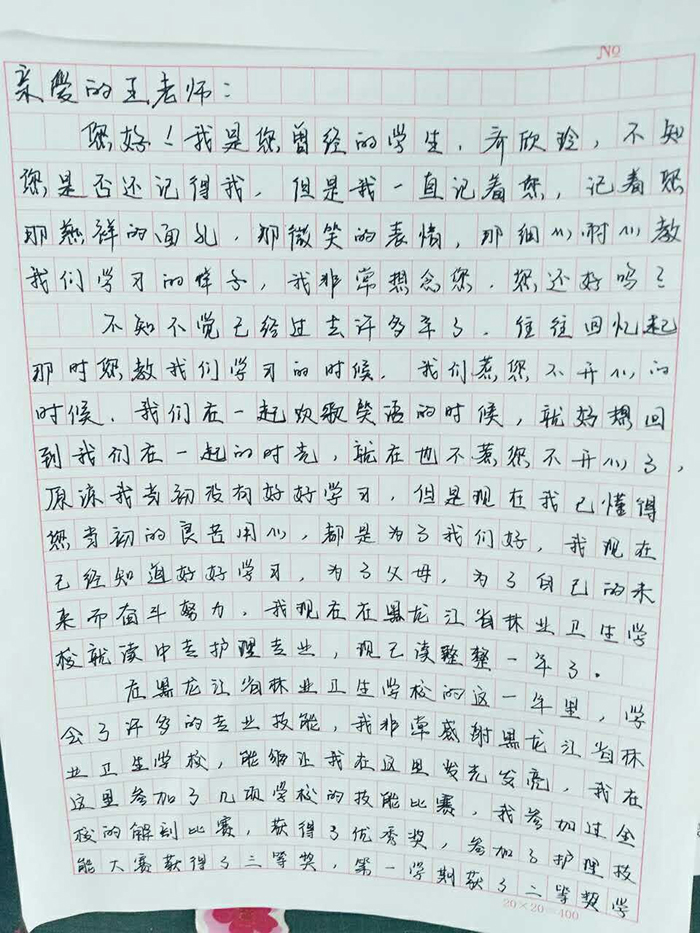 No
亲爱的王老师：
您好！我是您曾经的学生，乔欣玲，不知
您是否还记得我，但是我一直记着您，记着您
那慈祥的面孔，那微笑的表情，那细心耐心教
我们学习的样子，我非常想念您，您还好吗？
不知不觉已经过去许多年了，往往回忆起
那时您教我们学习的时候，我们惹您不开心的
时候，我们在一起欢歌笑语的时候，就好想回
到我们在一起的时光，就在也不惹您不开心了，
原谅我当初没有好好学习，但是现在我已懂得
您当初的良苦用心，都是为了我们好，我现在
已经知道好好学习，为了父母，为了自己的未
来而奋斗努力，我现在在黑龙江省林业卫生学
校就读中专护理专业，现已读整整一年了。
在黑龙江省林业卫生学校的这一年里，学
会了许多的专业技能，我非常感谢黑龙江省林
业卫生学校，能够让我在这里发光发亮，我在
这里参加了几项学校的技能比赛，我参加过全
校的解剖比赛，获得了优秀奖，参加了护理技
能大赛获得了三等奖，第一学期获了三等奖学
20×20=400